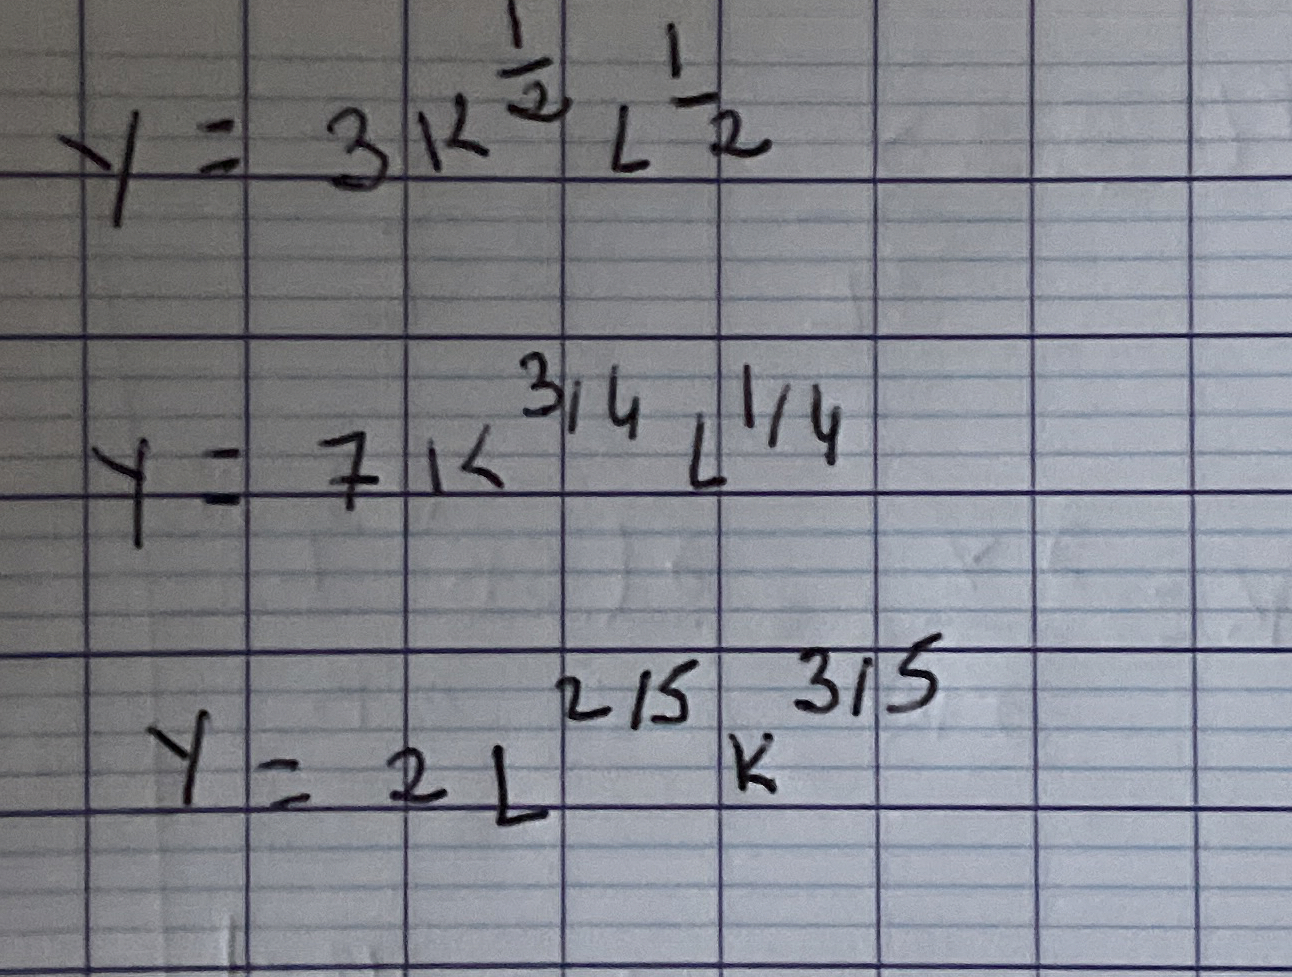 Y = 3 K^{1/2} L^{1/2}
Y = 7 K^{3/4} L^{1/4}
Y = 2 L^{2/5} K^{3/5}